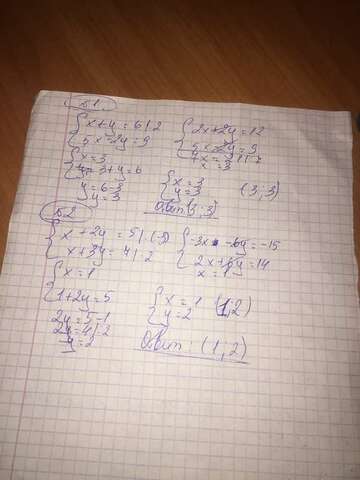 Б1
{ x+y = 6 | 2
5x-2y = 9
{ 2x+2y = 12
5x-2y = 9
7x = 21 | 7
x = 3
{ x = 3
3+y = 6
y = 6-3
y = 3
{ x = 3
y = 3
(3;3)
Ответ: (3;3)
Б2
{ x + 2y = 5 | (-3)
x + 3y = 7 | 2
{ -3x - 6y = -15
2x + 6y = 14
x = 1
{ x = 1
1+2y = 5
2y = 5-1
2y = 4 | 2
y = 2
{ x = 1
y = 2
(1,2)
Ответ: (1;2)